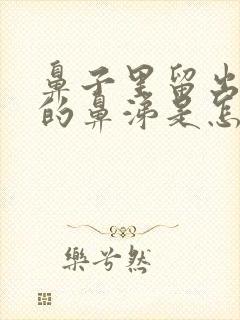 鼻子里留出
的鼻涕是怎
樂兮然